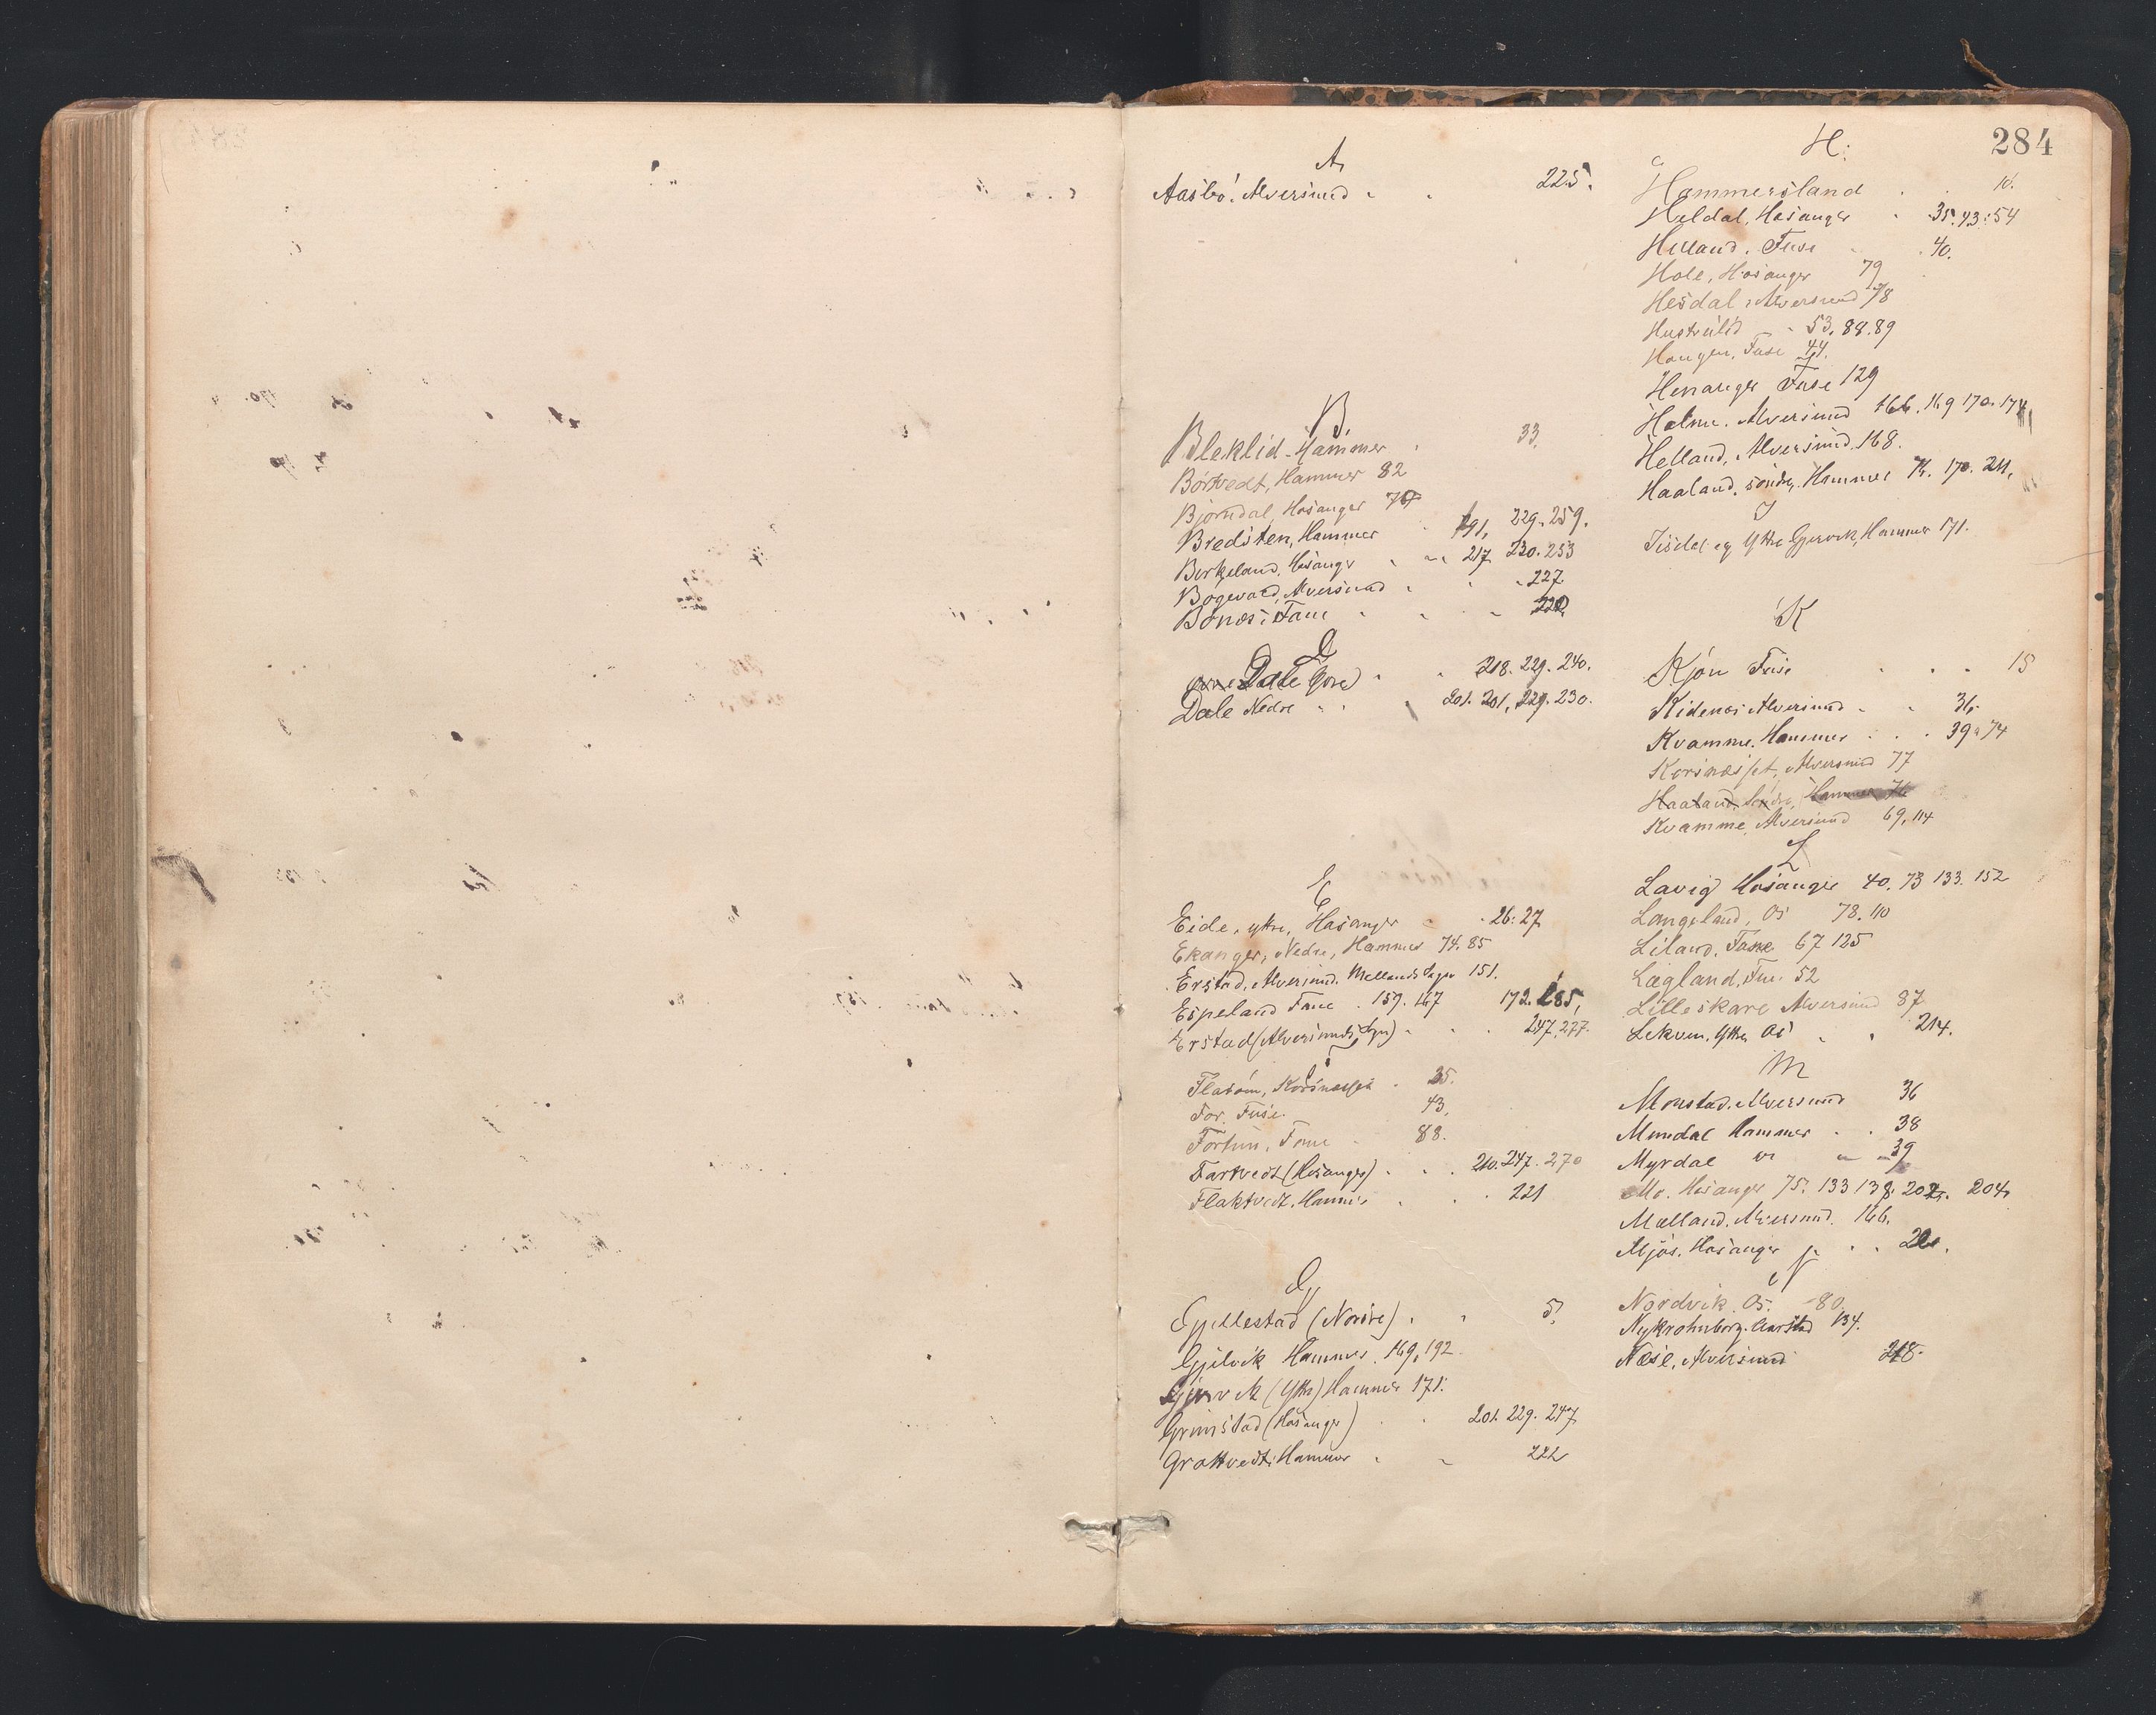 284
A
Aasbö. Alversund 225.
B.
Bleklid - Hammer 33.
Börtvedt, Hammer 82
Björndal, Hosanger
Bredsten, Hammer 191, 229. 259.
Birkeland, Hosangr 217 230. 253
Bogevold, Alversund 227.
Bönæs i Fane
D
Dale övre 218. 229. 240.
Dale Nedre 201. 201, 229. 230.
E
Eide, yttre, Hosanger 26. 27
Ekanger, Nedre, Hammer 74. 85
Erstad, Alversund. Mellands Sogn 151.
Espeland Fane. 159. 167 172. 185,
Erstad (Alversunds Sgn) 247. 277.
F
Flatöen, Korsnæsset 35.
For, Fuse. 43.
Fortun, Fane 88.
Fartvedt (Hosanger) 210. 247. 270
Flaktvedt. Hammer 221
G
Gjellestad (Nordre) 5.
Gjilvik Hammer. 169, 192.
Gjervik (Yttre) Hammer 171.
Grimstad (Hosanger) 201. 229. 247
Grottvedt. Hammer 222
H.
Hammersland 10.
Heldal, Hosanger 35. 43. 54
Helland. Fuse 40.
Hole, Hosanger 79
Hesdal, Alversund 78
Hustrulid 53. 88. 89
Haugen, Fuse 44.
Henanger Fuse 129
Holme. Alversund 166. 169 170. 174
Helland, Alversund. 168.
Haaland, söndre, Hammer 76. 170. 211.
J
Jisdal og Yttre Gjervik, Hammer 171.
K
Kjön Fuse 15
Kidenæs Alversund 36.
Kvamme. Hammer 39. 74
Korsnæsset, Alversund 77
Haaland Söndre, Hammer 76
Kvamme, Alversund 69, 114
L
Lavig Hosanger 40. 73 133. 152
Langeland, Os 78. 110
Liland. Fane 67 125
Lægland, Fuse 52
Lilleskare Alversund 87
Lekven. Yttre, Os 214.
M
Monstad. Alversund 36
Mundal Hammer 38
Myrdal Os 39
Mo. Hosanger 75. 133 138. 202. 204.
Mælland. Alversund. 166.
Mjös. Hosanger
N
Nordvik. Os. 80.
Nykrohnborg. Aarstad 134.
Næse, Alversund 218.